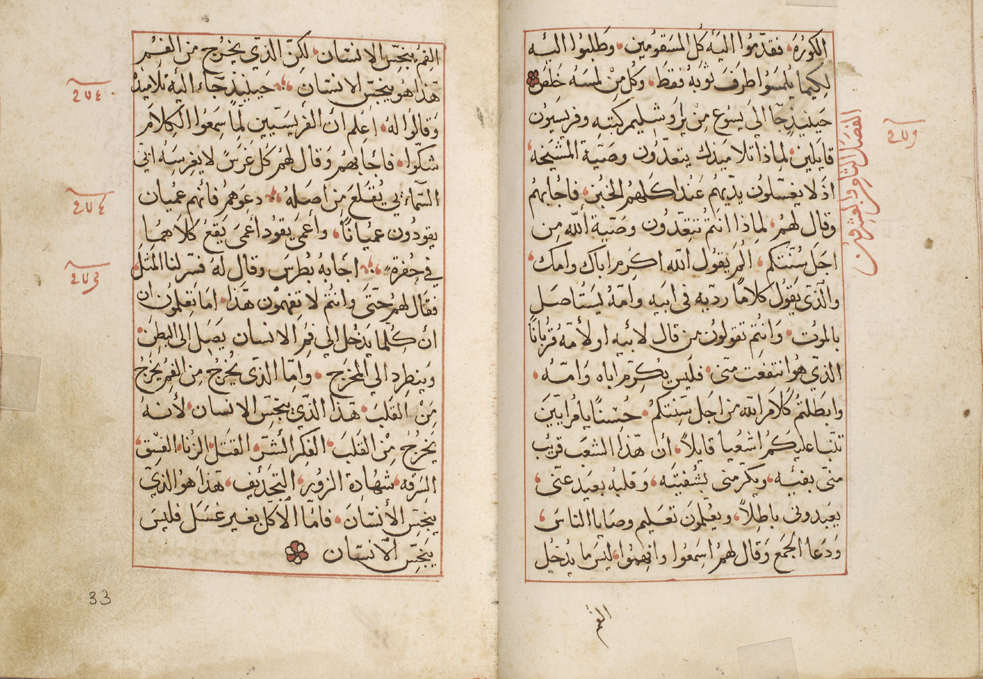 الكورة فقدموا اليه كل المسقومين وطلبوا اليه
لكيما يلمسوا طرف ثوبه فقط وكل من لمسه خلص
حينيذ جا الى يسوع من يروشليم كتبه وفريسيون
قايلين لماذا تلاميدك يتعدون وصية المشيخه
اذ لا يغسلون يديهم عند اكلهم الخبز فاجابهم
وقال لهم لماذا انتم تتعدون وصية الله من
اجل سنتكم الم يقول الله اكرم اباك وامك
والذي يقول كلاما رديه في ابيه وامه ليستاصل
بالموت وانتم تقولون من قال لابيه او لامه قربانا
الذي هو انتفعت مني فليس يكرم اباه وامه
وابطلتم كلام الله من اجل سنتكم حسنا يا مرايين
تنبا عليكم اشعيا قايلا ان هذا الشعب قريب
مني بفيه ويكرمني بشفتيه وقلبه بعيد عني
يعبدوني باطلا ويعلمون تعليم وصايا الناس
ودعا الجمع وقال لهم اسمعوا وافهموا ليس ما يدخل
الفم
الفصل الثامن والعشرون
الفم ينجس الانسان لكن الذي يخرج من الفم
هذا هو ينجس الانسان حينيذ جاء اليه تلاميذه
وقالوا له اعلم ان الفريسيين لما سمعوا الكلام
شكوا فاجابهم وقال لهم كل غرس لا يغرسه ابي
السماي يقلع من اصله دعوهم فانهم عميان
يقودون عميانا واعمى يقود اعمى يقع كلاهما
في حفرة اجابه بطرس وقال له فسر لنا المثل
فقال لهم حتى وانتم لا تفهمون هذا اما تعلمون ان
أن كلما يدخل الى فم الانسان يصل الى البطن
وينطرد الى المخرج واما الذي يخرج من الفم يخرج
من القلب هذا الذي ينجس الانسان لأنه
يخرج من القلب الفكر الشر القتل الزنا الفسق
السرقه شهادة الزور التجديف هذا هو الذي
ينجس الأنسان فاما الأكل بغير غسل فليس
ينجس الانسان
33